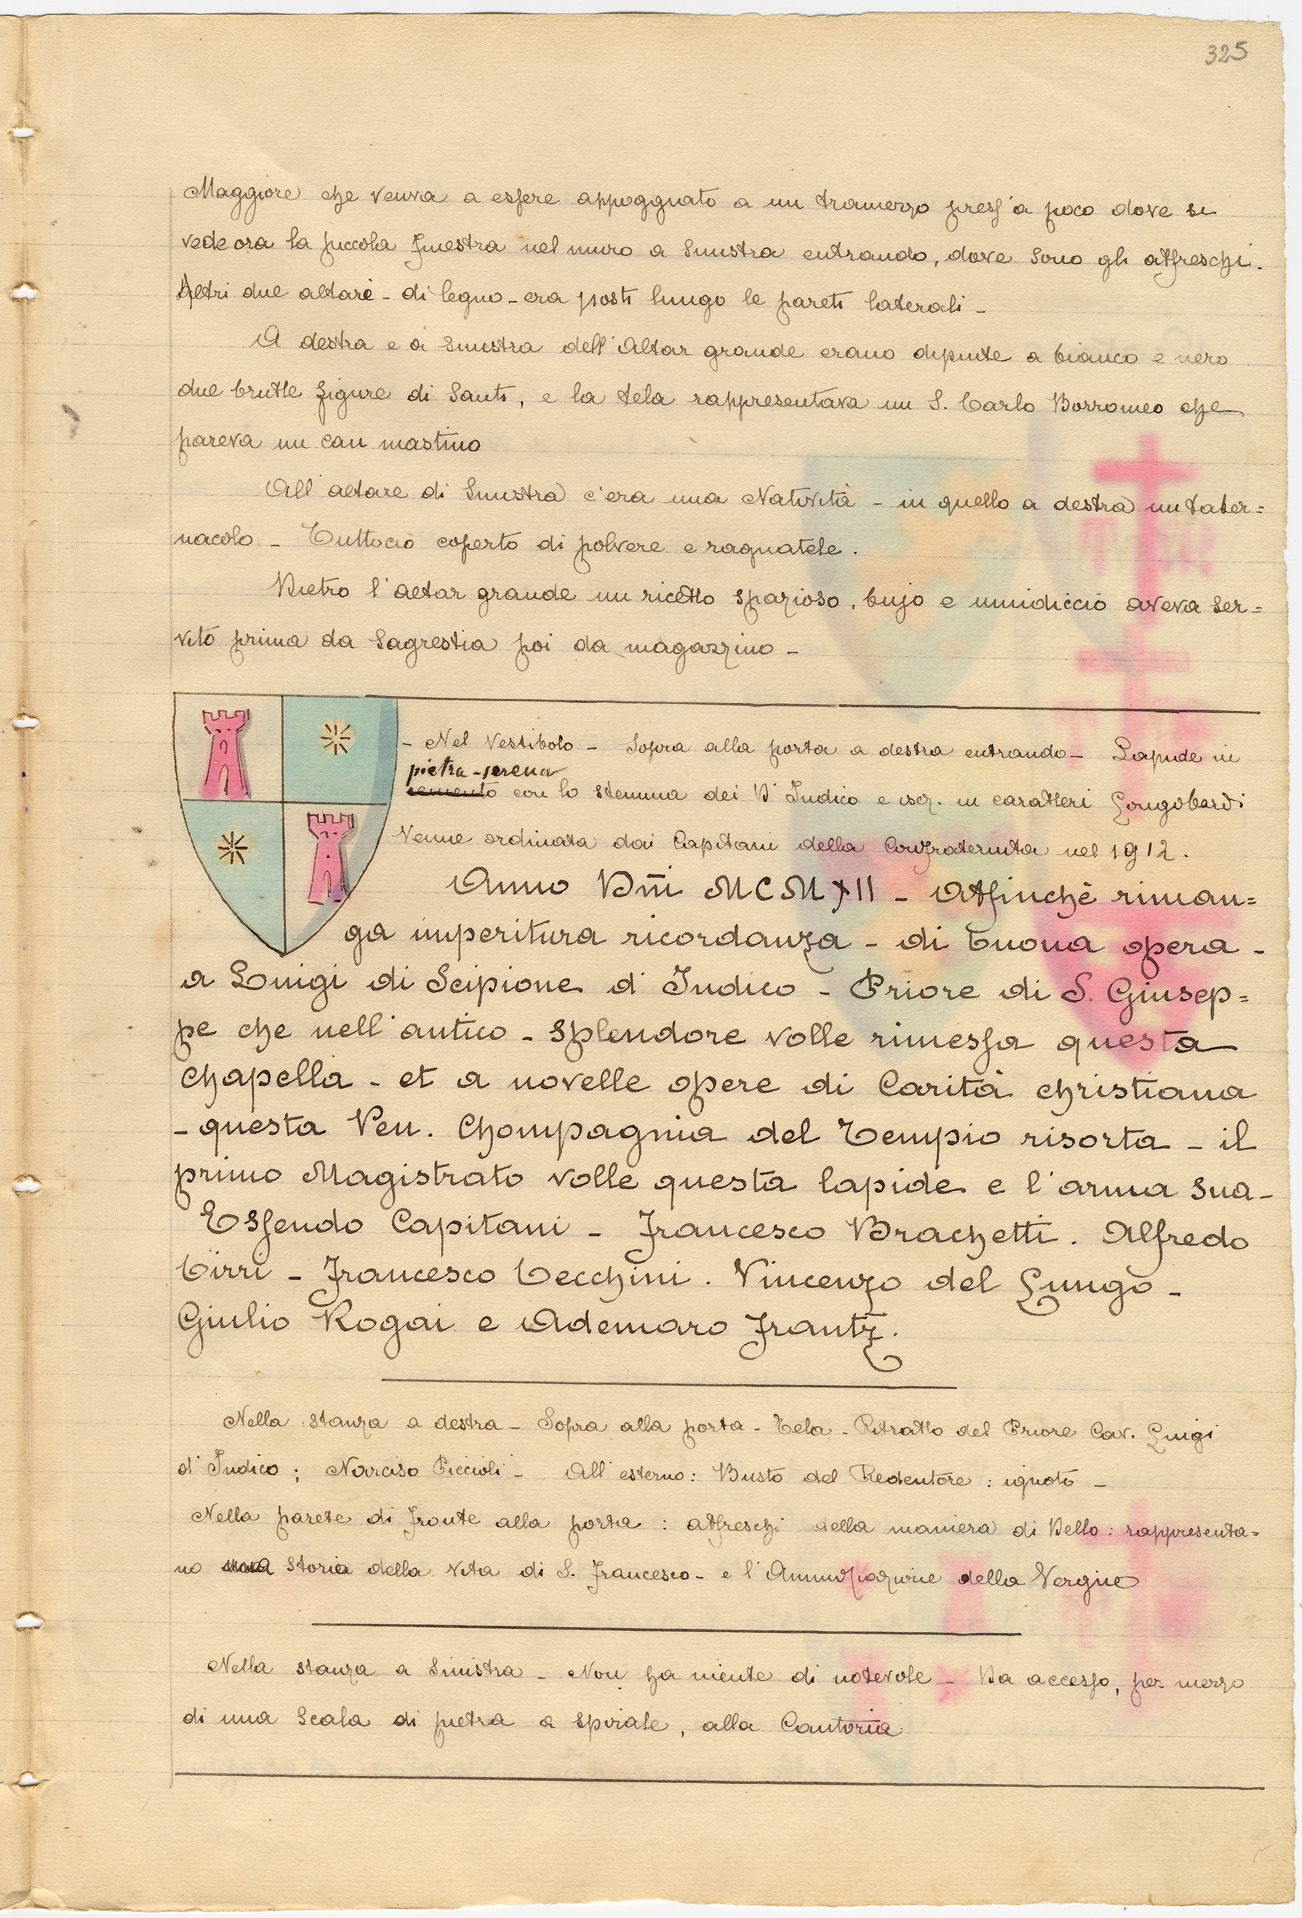 325
Maggiore che veniva a essere appoggiato a un tramezzo press'a poco dove si
vede ora la piccola finestra nel muro a sinistra entrando, dove sono gli affreschi.
Altri due altari - di legno - era posti lungo le pareti laterali -
A destra e a sinistra dell'Altar grande erano dipinte a bianco e nero
due brutte figure di Santi, e la tela rappresentava un S. Carlo Borromeo che
pareva un can mastino
All'altare di Sinistra c'era una Natività - in quello a destra un taber=
nacolo - Tuttociò coperto di polvere e ragnatele.
Dietro l'altar grande un ricetto spazioso, bujo e umidiccio aveva ser=
vito prima da Sagrestia poi da magazzino -
- Nel Vestibolo - Sopra alla porta a destra entrando - Lapide in
pietra-serena
cemento con lo stemma dei D'Indico e iscr. in caratteri Longobardi
Venne ordinata dai Capitani della Confraternita nel 1912.
Anno Dñi MCMXII - Affinchè riman=
ga imperitura ricordanza - di buona opera -
a Luigi di Scipione d'Indico - Priore di S. Giusep=
pe che nell'antico - splendore volle rimessa questa
chapella - et a novelle opere di Carità christiana
- questa Ven. Chompagnia del Tempio risorta - il
primo Magistrato volle questa lapide e l'arma sua -
Essendo Capitani - Francesco Brachetti. Alfredo
Cirri - Francesco Cecchini. Vincenzo del Lungo -
Giulio Rogai e Ademaro Frantz.
Nella stanza a destra - Sopra alla porta - Tela - Ritratto del Priore Cav. Luigi
d'Indico; Narciso Piccioli - All'esterno: Busto del Redentore: ignoto -
Nella parete di fronte alla porta: affreschi della maniera di Dello: rappresenta=
no una Storia della vita di S. Francesco - e l'Annunziazione della Vergine
Nella stanza a Sinistra - Non ha niente di notevole - Da accesso, per mezzo
di una Scala di pietra a spirale, alla Cantoria